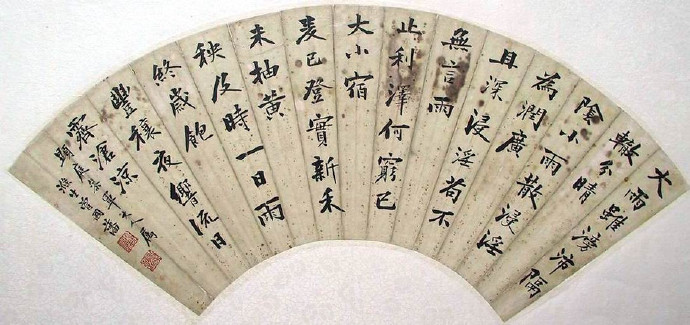 大雨雖滂沛隔
轍分晴
陰小雨
為潤廣散浸淫
且深浸淫苟不
無言雨
止利澤何窮已
大小宿
麦已登實新禾
未抽黃
秧及時一日雨
終歲飽
豐穰夜響流日
霽滄凉
曾國藩